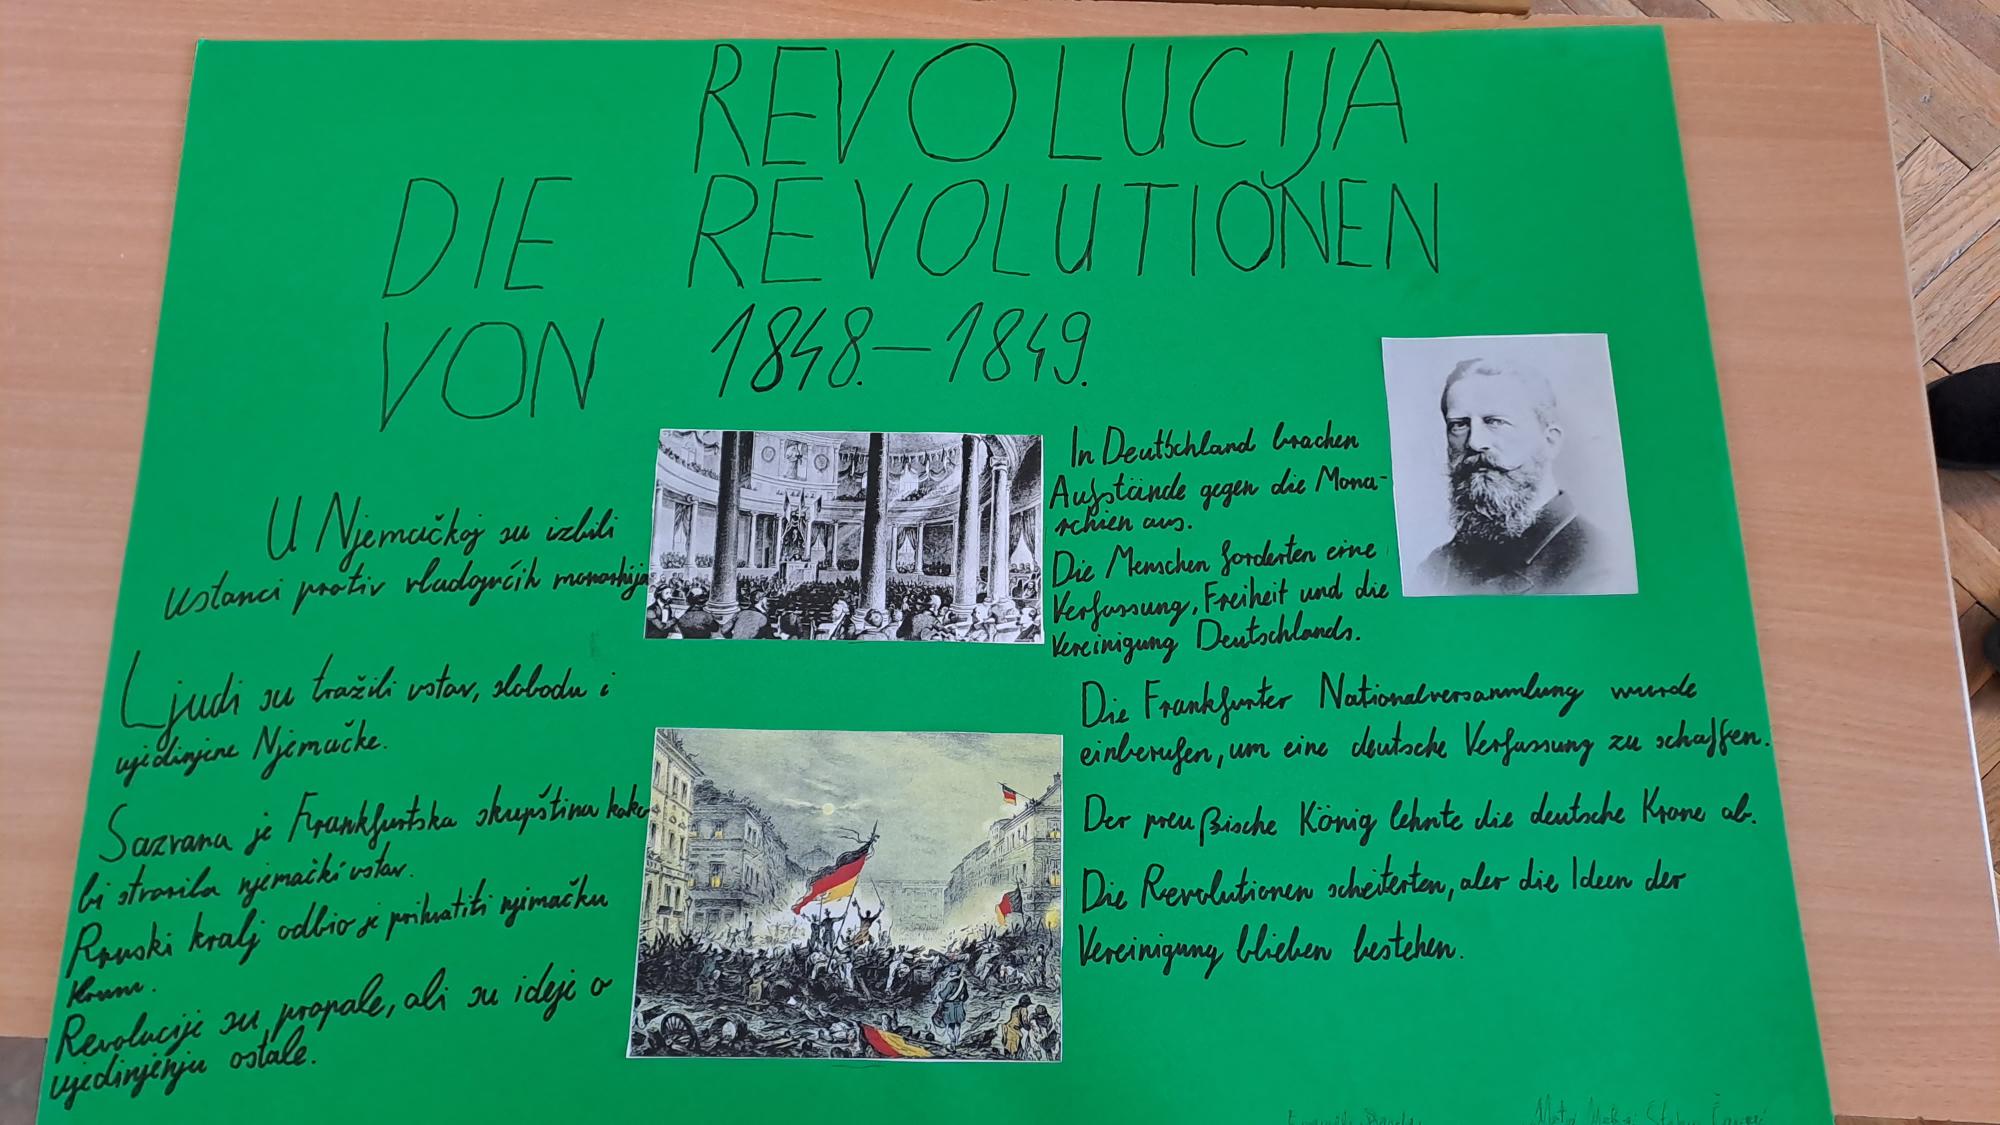 REVOLUCIJA
DIE REVOLUTIONEN
VON 1848.–1849.
U Njemačkoj su izbili
ustanci protiv vladajućih monarhija
Ljudi su tražili ustav, slobodu i
ujedinjene Njemačke.
Sazvana je Frankfurtska skupština kako
bi stvorila njemački ustav.
Pruski kralj odbio je prihvatiti njemačku
krunu.
Revolucije su propale, ali su ideje o
ujedinjenju ostale.
In Deutschland brachen
Aufstände gegen die Mona-
rchien aus.
Die Menschen forderten eine
Verfassung, Freiheit und die
Vereinigung Deutschlands.
Die Frankfurter Nationalversammlung wurde
einberufen, um eine deutsche Verfassung zu schaffen.
Der preußische König lehnte die deutsche Krone ab.
Die Revolutionen scheiterten, aber die Ideen der
Vereinigung blieben bestehen.